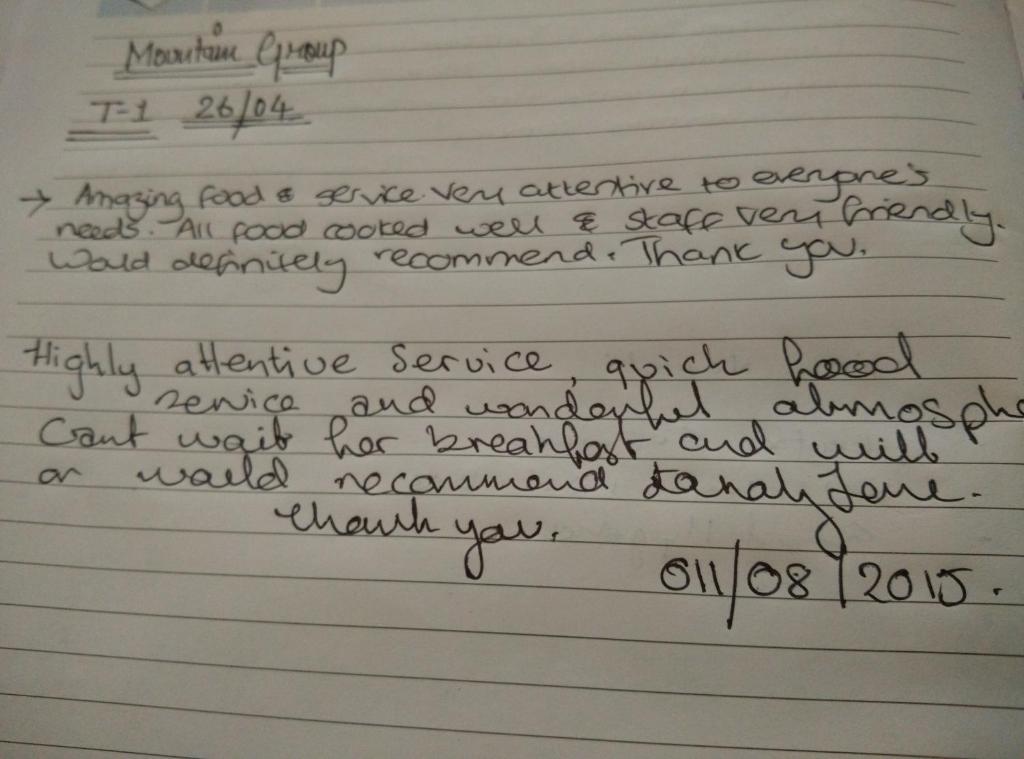 Mountain Group
T-1 26/04
→ Amazing food & service. Very attentive to everyone's
needs. All food cooked well & staff very friendly.
Would definitely recommend. Thank you.
Highly attentive Service, quick food
service and wonderful atmosphe
Cant wait for breakfast and will
or would recommend
Thank you.
011/08/2015.